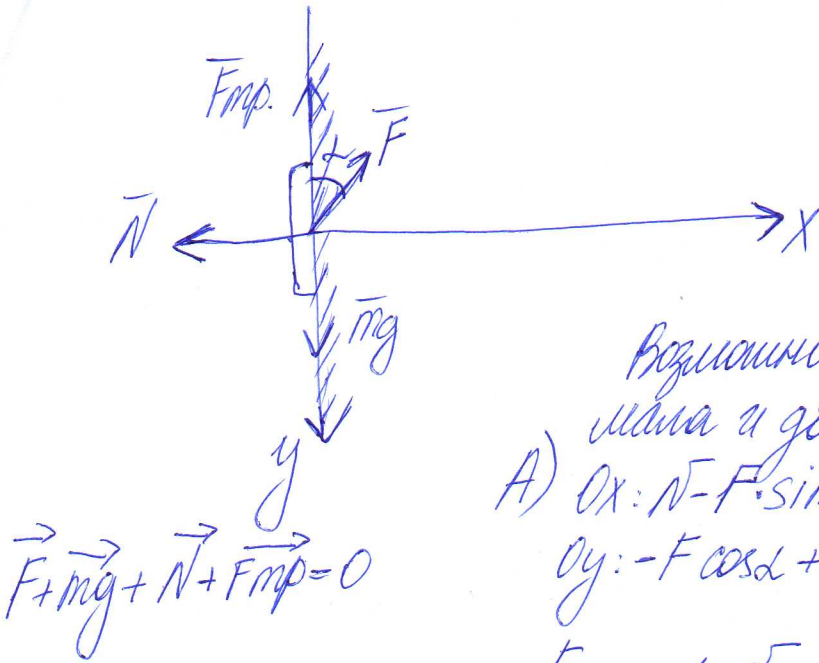 F̅тр.
α
F̅
N̅
X
m̅g
y
Возможн
мала и
А) Ox: N - F·sin
Oy: -Fcosα +
F⃗ + mg⃗ + N⃗ + Fтр⃗ = 0